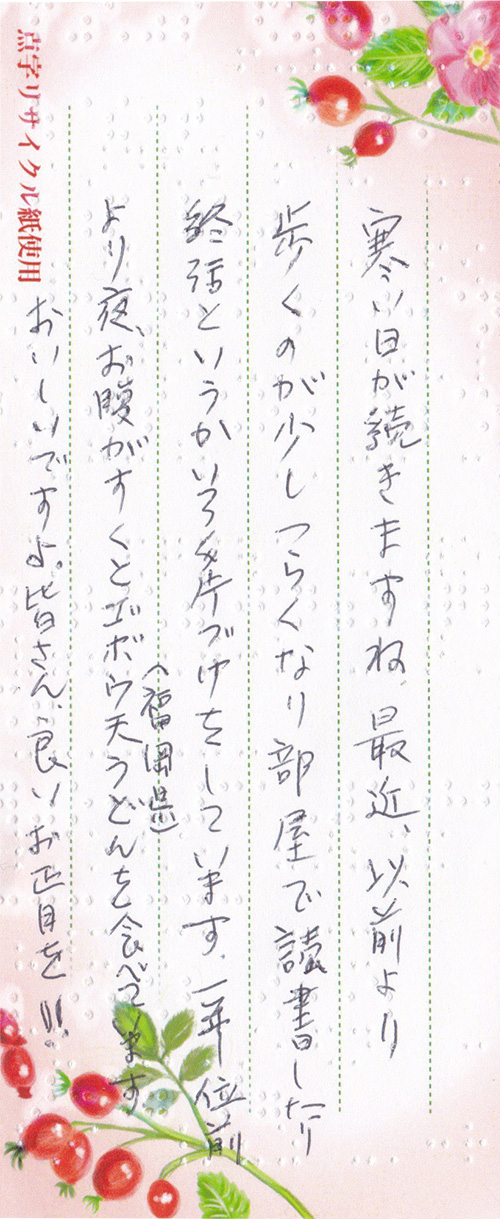 寒い日が続きますね、最近、以前より
歩くのが少しつらくなり部屋で読書したり
終活というかいろ々片づけをしています。一年位前
より夜、お腹がすくとゴボウ天うどんを食べています
(福岡県)
おいしいですよ。皆さん、良いお正月を!!
点字リサイクル紙使用